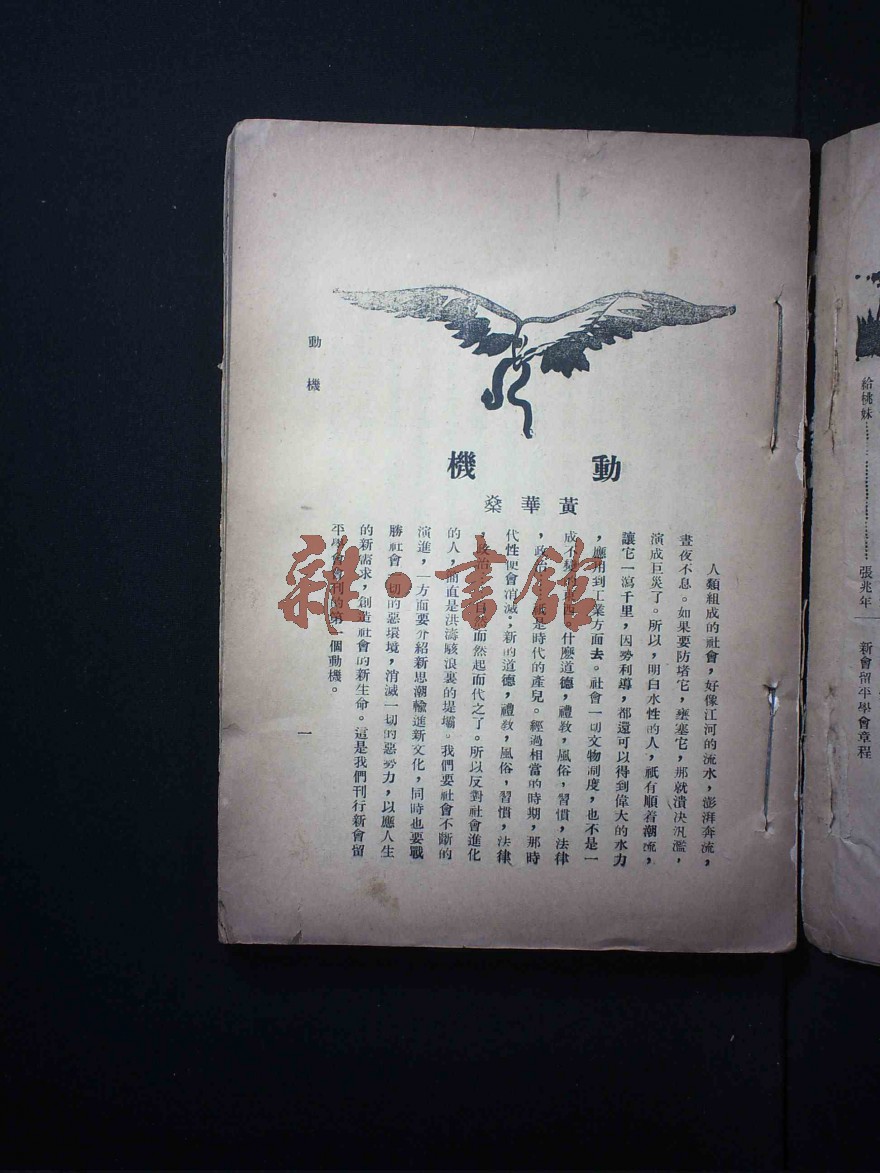 動機
動機
黃華燊
人類組成的社會，好像江河的流水，澎湃奔流，
晝夜不息。如果要防堵它，壅塞它，那就潰決汎濫，
演成巨災了。所以，明白水性的人，祇有順着潮流，
讓它一瀉千里，因勢利導，都還可以得到偉大的水力
，應用到工業方面去。社會一切文物制度，也不是一
成不變的東西。什麼道德，禮教，風俗，習慣，法律
，政治，祇是時代的產兒。經過相當的時期，那時
代性便會消滅；新的道德，禮教，風俗，習慣，法律
，政治，自然而然起而代之了。所以反對社會進化
的人，簡直是洪濤駭浪裏的堤壩。我們要社會不斷的
演進，一方面要介紹新思潮輸進新文化，同時也要戰
勝社會一切的惡環境，消滅一切的惡勢力，以應人生
的新需求，創造社會的新生命。這是我們刊行新會留
平學會會刊的第一個動機。
一
雜·書館
給桃妹
張兆年
新會留平學會章程